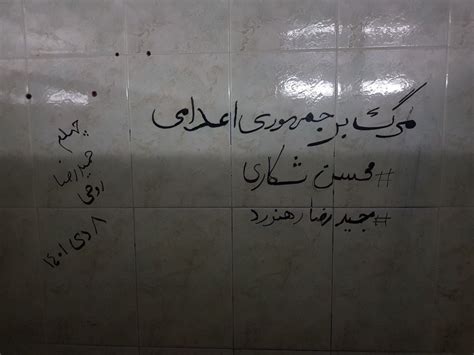 مرگ بر جمهوری اعدامی
#محسن شکاری
#مجید رضا رهنورد
چهلم
حمیدرضا
روحی
۸ دی ۱۴۰۱